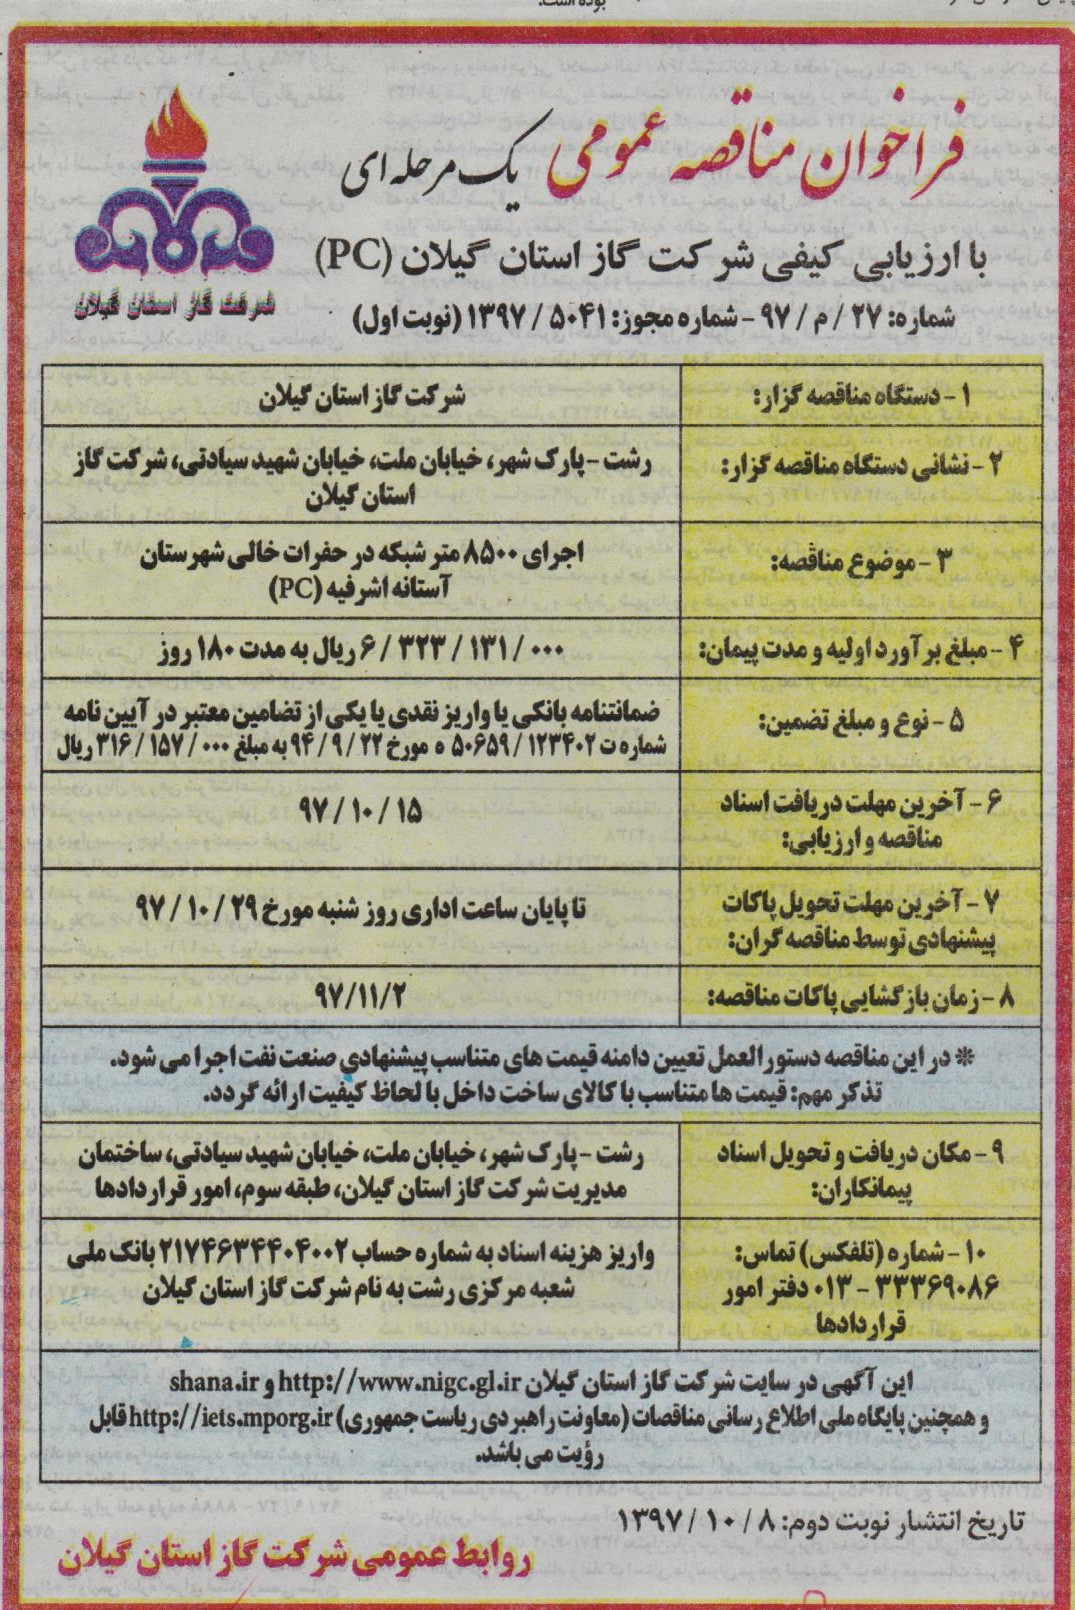 بوده است.
فراخوان مناقصه عمومی یک مرحله ای
با ارزیابی کیفی شرکت گاز استان گیلان (PC)
شماره: ۲۷ / م / ۹۷ - شماره مجوز: ۵۰۴۱ / ۱۳۹۷ (نوبت اول)
شرکت گاز استان گیلان
۱ - دستگاه مناقصه گزار:
شرکت گاز استان گیلان
۲ - نشانی دستگاه مناقصه گزار:
رشت - پارک شهر، خیابان ملت، خیابان شهید سیادتی، شرکت گاز
استان گیلان
۳ - موضوع مناقصه:
اجرای ۸۵۰۰ متر شبکه در حفرات خالی شهرستان
آستانه اشرفیه (PC)
۴ - مبلغ برآورد اولیه و مدت پیمان:
۶ / ۳۲۳ / ۱۳۱ / ۰۰۰ ریال به مدت ۱۸۰ روز
۵ - نوع و مبلغ تضمین:
ضمانتنامه بانکی یا واریز نقدی یا یکی از تضامین معتبر در آیین نامه
شماره ت ۱۲۳۴۰۲ / ۵۰۶۵۹ ه مورخ ۹۴ / ۹ / ۲۲ به مبلغ ۳۱۶ / ۱۵۷ / ۰۰۰ ریال
۶ - آخرین مهلت دریافت اسناد
مناقصه و ارزیابی:
۹۷ / ۱۰ / ۱۵
۷ - آخرین مهلت تحویل پاکات
پیشنهادی توسط مناقصه گران:
تا پایان ساعت اداری روز شنبه مورخ ۹۷ / ۱۰ / ۲۹
۸ - زمان بازگشایی پاکات مناقصه:
۹۷/۱۱/۲
* در این مناقصه دستورالعمل تعیین دامنه قیمت های متناسب پیشنهادی صنعت نفت اجرا می شود.
تذکر مهم: قیمت ها متناسب با کالای ساخت داخل با لحاظ کیفیت ارائه گردد.
۹ - مکان دریافت و تحویل اسناد
پیمانکاران:
رشت - پارک شهر، خیابان ملت، خیابان شهید سیادتی، ساختمان
مدیریت شرکت گاز استان گیلان، طبقه سوم، امور قراردادها
۱۰ - شماره (تلفکس) تماس:
۳۳۳۶۹۰۸۶ - ۰۱۳ دفتر امور
قراردادها
واریز هزینه اسناد به شماره حساب ۲۱۷۴۶۳۴۴۰۴۰۰۲ بانک ملی
شعبه مرکزی رشت به نام شرکت گاز استان گیلان
این آگهی در سایت شرکت گاز استان گیلان http://www.nigc.gl.ir و shana.ir
و همچنین پایگاه ملی اطلاع رسانی مناقصات (معاونت راهبردی ریاست جمهوری) http://iets.mporg.ir قابل
رؤیت می باشد.
تاریخ انتشار نوبت دوم: ۸ / ۱۰ / ۱۳۹۷
روابط عمومی شرکت گاز استان گیلان